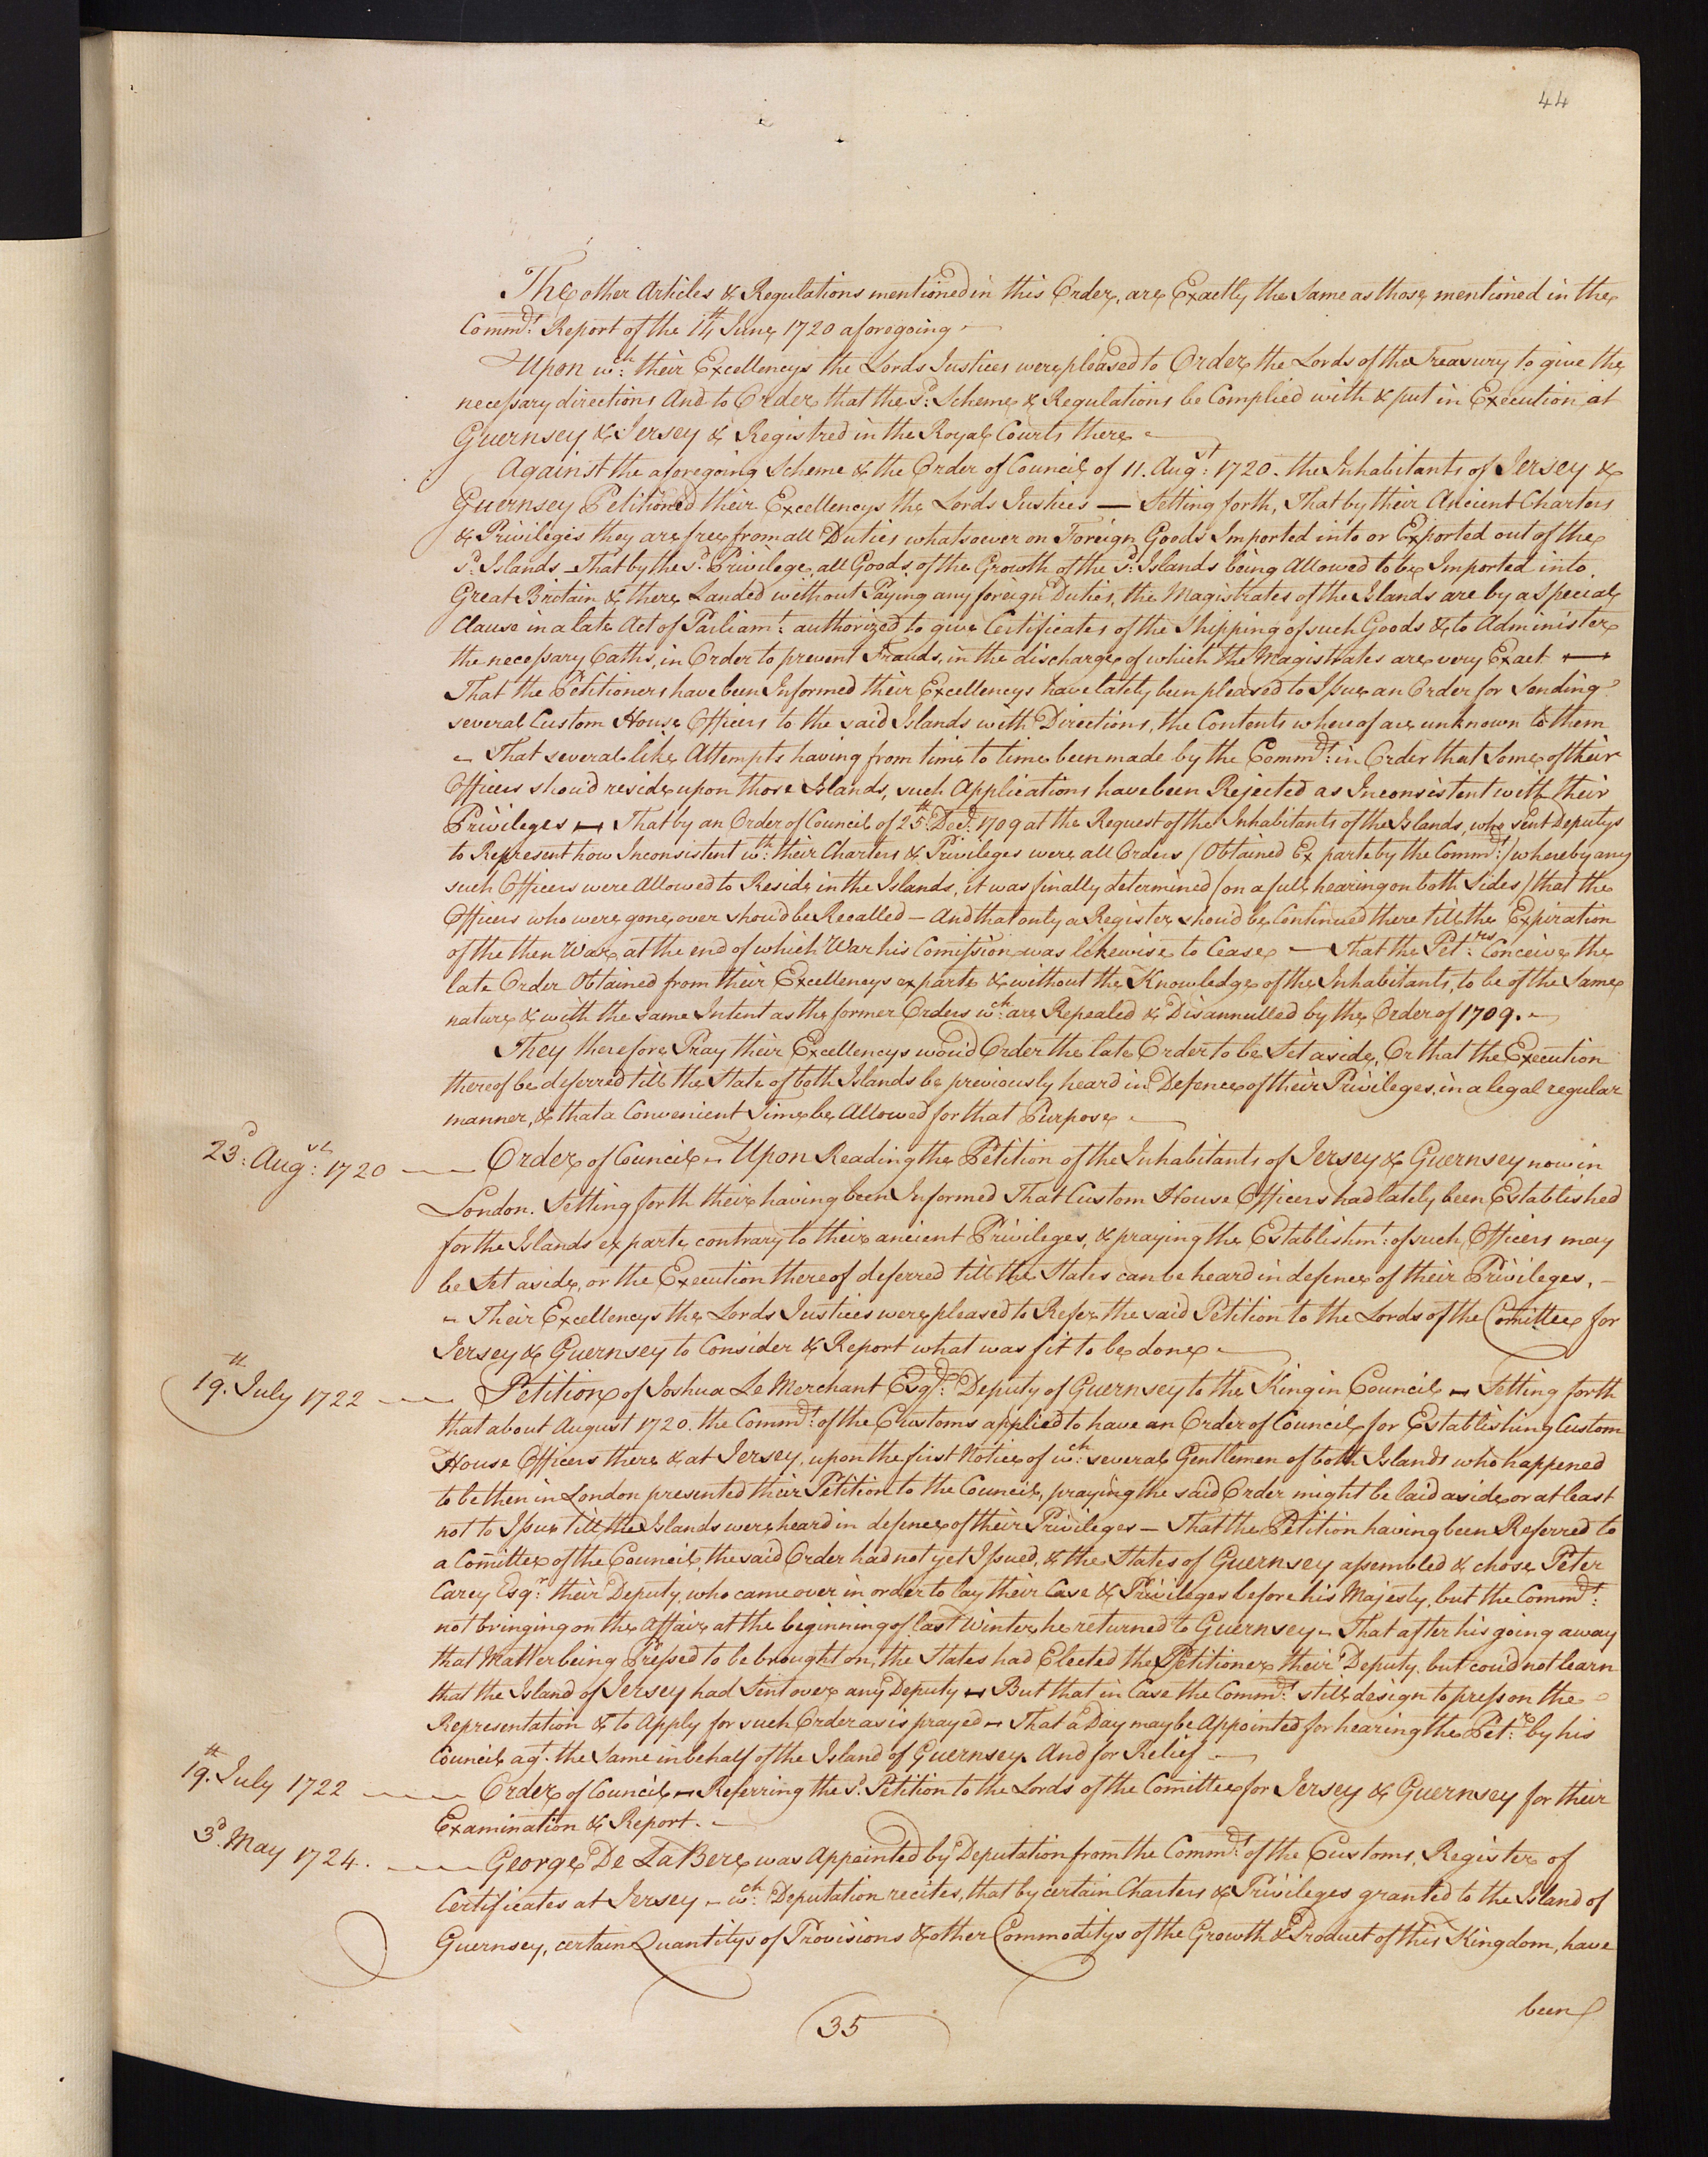 44
The other Articles & Regulations mentioned in this Order, are Exactly the Same as those mentioned in the
Commrs. Report of the 14th June 1720 aforegoing —
Upon wch. their Excellencys the Lords Justices were pleased to Order the Lords of the Treasury to give the
necessary directions And to Order that the sd. Scheme & Regulations be Complied with & put in Execution at
Guernsey & Jersey & Registred in the Royal Courts there —
Against the aforegoing Scheme & the Order of Council of 11. Augst: 1720. the Inhabitants of Jersey &
Guernsey Petitioned their Excellencys the Lords Justices — Setting forth, That by their Ancient Charters
& Privileges they are free from all Duties whatsoever on Foreign Goods Imported into or Exported out of the
sd. Islands — That by the sd. Privilege all Goods of the Growth of the sd. Islands being Allowed to be Imported into
Great Britain & there Landed without Paying any foreign Duties, the Magistrates of the Islands are by a Special
Clause in a late Act of Parliamt. authorized to give Certificates of the Shipping of such Goods & to Administer
the necessary Oaths, in Order to prevent Frauds, in the discharge of which the Magistrates are very Exact —
That the Petitioners have been Informed their Excellencys have lately been pleased to Issue an Order for Sending
several Custom House Officers to the said Islands with Directions, the Contents whereof are unknown to them
— That several like Attempts having from time to time been made by the Commrs: in Order that Some of their
Officers shou'd reside upon those Islands, such Applications have been Rejected as Inconsistent with their
Privileges — That by an Order of Council of 25th Decr. 1709 at the Request of the Inhabitants of the Islands, who sent Deputys
to Represent how Inconsistent wth: their Charters & Privileges were all Orders (Obtained Ex parte by the Commrs:) whereby any
such Officers were Allowed to Reside in the Islands, it was finally determined (on a full hearing on both Sides) that the
Officers who were gone over shou'd be Recalled — And that only a Register shou'd be Continued there till the Expiration
of the then War, at the end of which War his Comission was likewise to Cease — That the Petrs. Conceive the
late Order Obtained from their Excellencys ex parte & without the Knowledge of the Inhabitants, to be of the Same
nature & with the same Intent as the former Orders wch: are Repealed & Disannulled by the Order of 1709. —
They therefore Pray their Excellencys wou'd Order the late Order to be Set aside, Or that the Execution
thereof be deferred till the State of both Islands be previously heard in Defence of their Privileges, in a legal regular
manner, & that a Convenient Time be Allowed for that Purpose —
23d: Augst: 1720 — Order of Council — Upon Reading the Petition of the Inhabitants of Jersey & Guernsey now in
London. Setting forth their having been Informed That Custom House Officers had lately been Established
for the Islands ex parte contrary to their ancient Privileges, & praying the Establishmt: of such Officers may
be Set aside, or the Execution thereof deferred till the States can be heard in defence of their Privileges, —
— Their Excellencys the Lords Justices were pleased to Refer the said Petition to the Lords of the Comittee for
Jersey & Guernsey to Consider & Report what was fit to be done —
19th. July 1722 — Petition of Joshua Le Merchant Esqr: Deputy of Guernsey to the King in Council — Setting forth
that about August 1720. the Commrs: of the Customs applied to have an Order of Council for Establishing Custom
House Officers there & at Jersey, upon the first Notice of wch: several Gentlemen of both Islands who happened
to be then in London presented their Petition to the Council, praying the said Order might be laid aside or at least
not to Issue till the Islands were heard in defence of their Privileges — That the Petition having been Referred to
a Comittee of the Council, the said Order had not yet Issued, & the States of Guernsey assembled & chose Peter
Carey Esqr: their Deputy, who came over in order to lay their Case & Privileges before his Majesty, but the Commrs:
not bringing on the Affair at the beginning of last Winter, he returned to Guernsey — That after his going away
that Matter being Pressed to be brought on, the States had Elected the Petitioner their Deputy, but cou'd not learn
that the Island of Jersey had Sent over any Deputy — But that in Case the Commrs: still design to press on the
Representation & to Apply for such Order as is prayed — That a Day may be Appointed for hearing the Petr: by his
Council agt. the Same in behalf of the Island of Guernsey. And for Relief —
19th. July 1722 — Order of Council — Referring the sd. Petition to the Lords of the Comittee for Jersey & Guernsey for their
Examination & Report. —
3d. May 1724. — George De La Bere was Appointed by Deputation from the Commrs: of the Customs, Register of
Certificates at Jersey — wch: Deputation recites, that by certain Charters & Privileges granted to the Island of
Guernsey, certain Quantitys of Provisions & other Commoditys of the Growth & Product of this Kingdom, have
been
35